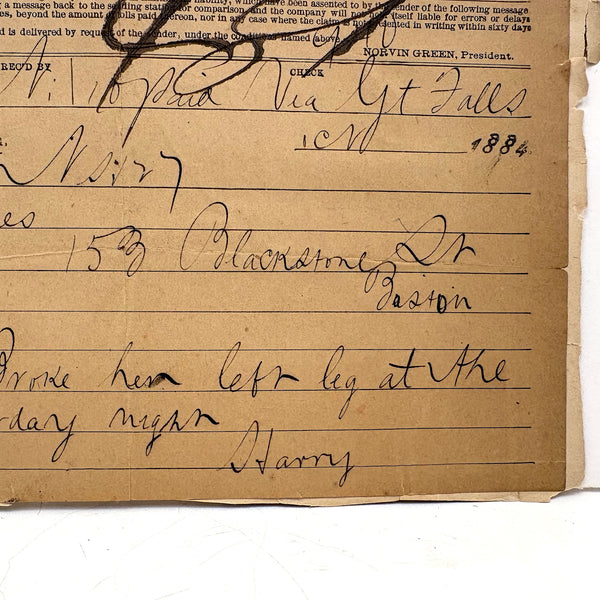 message back to the sending station for comparison, and the company will not hold itself liable for errors or delays
es, beyond the amount of tolls paid thereon, nor in any case where the claim is not presented in writing within sixty days
d is delivered by request of the sender, under the conditions named above.
NORVIN GREEN, President.
REC'D BY CHECK
paid Via Gt Falls
1884
Ns. 27
es
153 Blackstone St
Boston
Broke her left leg at the
rday night
Harry